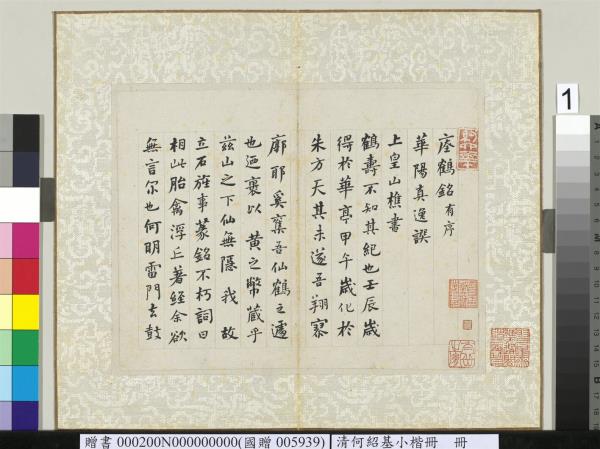 瘞鶴銘有序
華陽真逸譔
上皇山樵書
鶴壽不知其紀也壬辰歲
得於華亭甲午歲化於
朱方天其未遂吾翔寥
廓耶奚奪吾仙鶴之遽
也迺裹以黃之幣藏乎
茲山之下仙無隱我故
立石旌事篆銘不朽詞曰
相此胎禽浮丘著經余欲
無言尔也何明雷門去鼓
1
贈書 000200N000000000(國贈 005939)
清何紹基小楷冊 冊